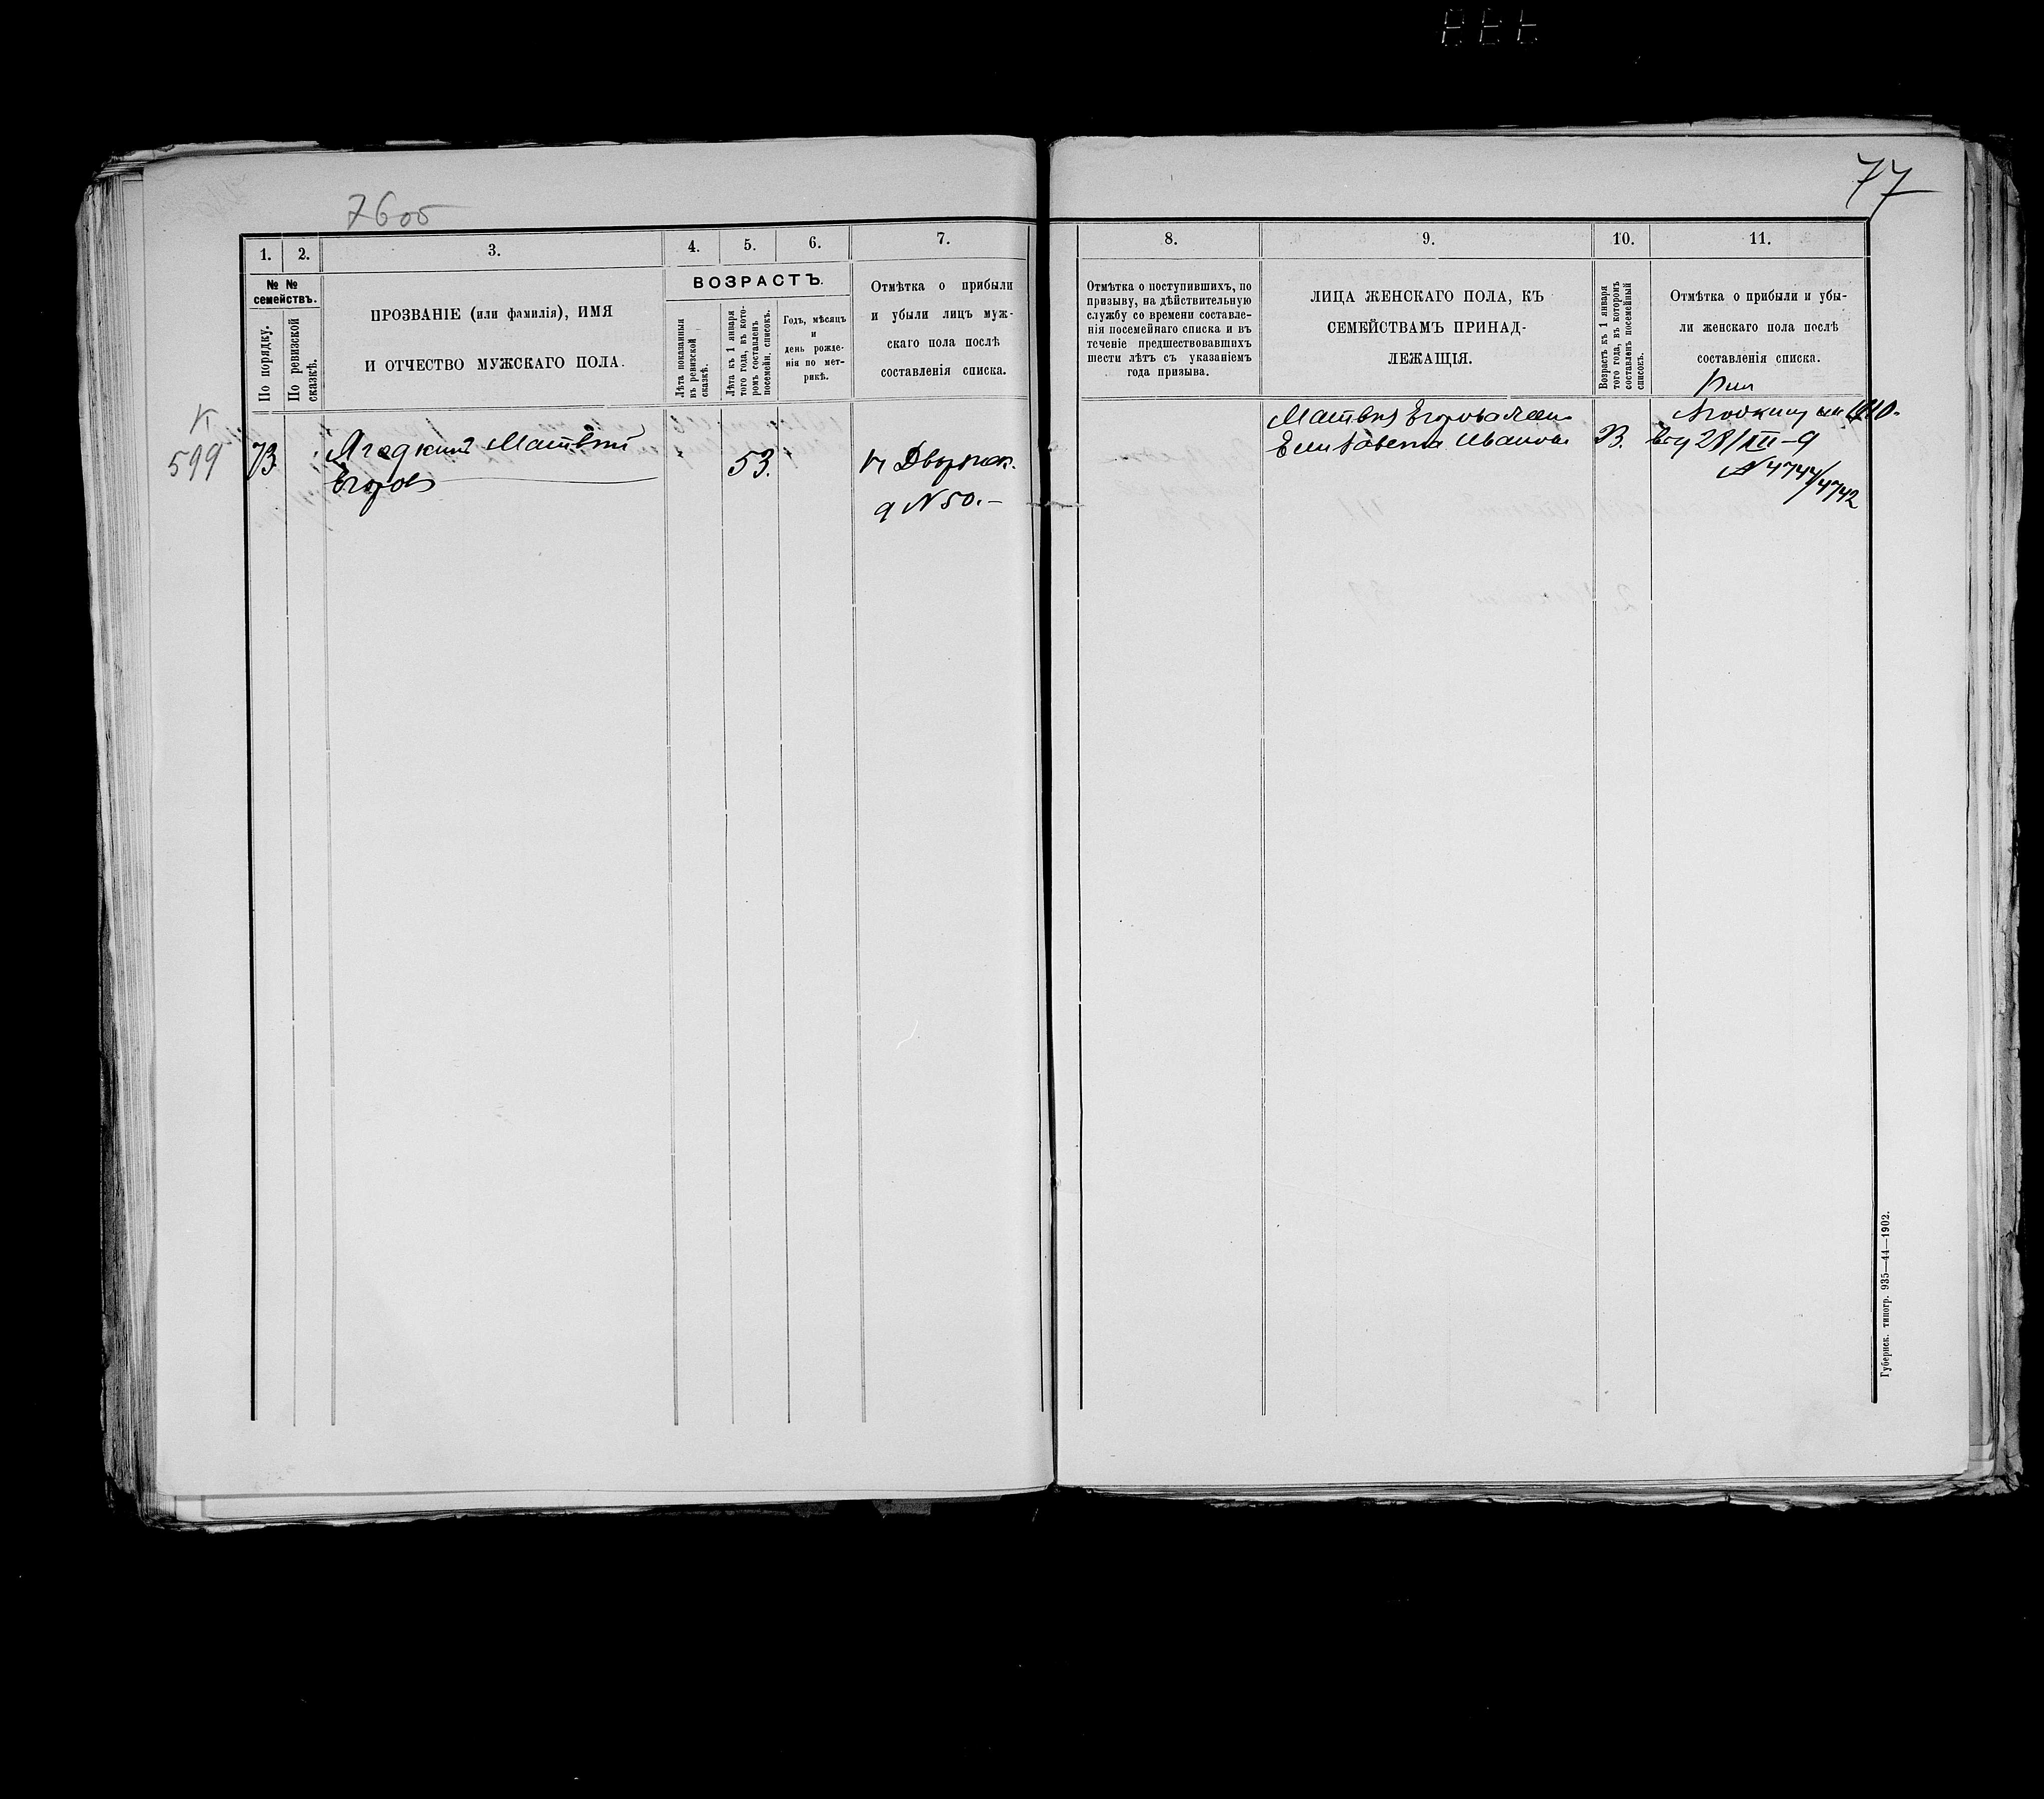 76об
77
1.
2.
3.
4.
5.
6.
7.
№ №
семействъ.
По порядку.
По ревизской
сказкѣ.
ПРОЗВАНІЕ (или фамилія), ИМЯ
И ОТЧЕСТВО МУЖСКАГО ПОЛА.
ВОЗРАСТЪ.
Лѣта показанныя
въ ревизской
сказкѣ.
Лѣта къ 1 января
того года, въ кото-
ромъ составленъ
посемейн. списокъ.
Годъ, мѣсяцъ
и
день рожде-
нія по мет-
рикѣ.
Отмѣтка о прибыли
и убыли лицъ муж-
скаго пола послѣ
составленія списка.
599
73
Ягодкинъ Матвѣй
Егоровъ
53.
N 50.-
8.
9.
10.
11.
Отмѣтка о поступившихъ, по
призыву, на дѣйствительную
службу со времени составле-
нія посемейнаго списка и въ
теченіе предшествовавшихъ
шести лѣтъ съ указаніемъ
года призыва.
ЛИЦА ЖЕНСКАГО ПОЛА, КЪ
СЕМЕЙСТВАМЪ ПРИНАД-
ЛЕЖАЩІЯ.
Возрастъ къ 1 января
того года, въ которомъ
составленъ посемейный
списокъ.
Отмѣтка о прибыли и убы-
ли женскаго пола послѣ
составленія списка.
Матвѣя Егорова жена
Елизавета Иванова
28/XII-9
N 4744/4742
Губернск. типогр. 935—44—1902.